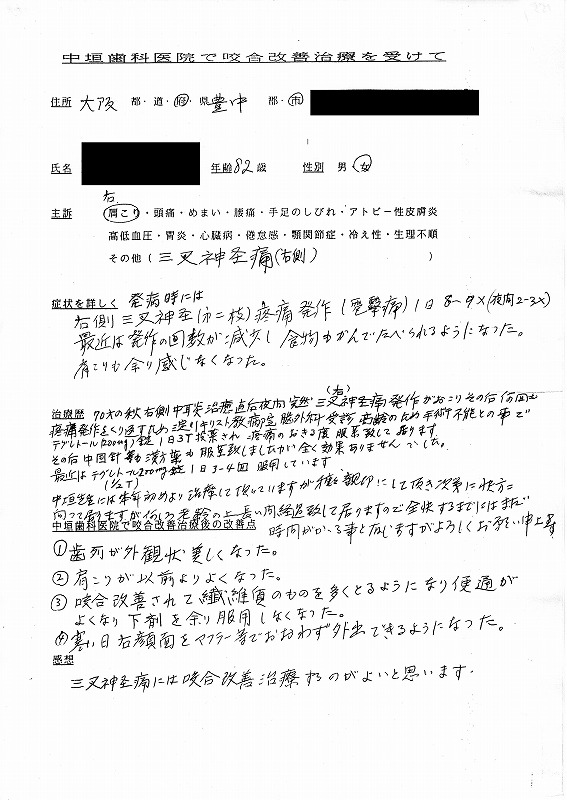 中垣歯科医院で咬合改善治療を受けて
住所 大阪 都・道・府・県 豊中 郡・市
氏名 年齢 82 歳 性別 男・女
右
主訴 肩こり・頭痛・めまい・腰痛・手足のしびれ・アトピー性皮膚炎
高低血圧・胃炎・心臓病・倦怠感・顎関節症・冷え性・生理不順
その他(三叉神経痛(右側) )
症状を詳しく 発病時には
右側三叉神経(第二枝)疼痛発作(電撃痛)1日8~9×(夜間2-3×)
最近は発作の回数が減少し食物もかんでたべられるようになった。
肩こりも余り感じなくなった。
(右)
治療歴 70才の秋右側中耳炎治療直后夜間突然三叉神経痛発作がおこりその后何回も
疼痛発作をくり返すため淀川キリスト教病院脳外科受診 高齢のため手術不能との事で
テグレトール(200mg)錠1日3T投薬され疼痛のおきる度服薬致して居ります
その后中国針 漢方薬も服薬致しましたが全く効果ありませんでした。
最近はテグレトール200mg錠1日3-4回服用しています
(1/2T)
中垣先生には本年初めより治療して頂いていますが種々親切にして頂き次第に快方に
向って居ますが何しろ老齢の上長い間経過致して居りますので全快するまでにはまだ
時間がかかる事と存じますがよろしくお願い申上ます
中垣歯科医院で咬合改善治療後の改善点
①歯列が外観状美しくなった。
②肩こりが以前よりよくなった。
③咬合改善されて繊維質のものを多くとるようになり便通が
よくなり下剤を余り服用しなくなった。
④寒い日右顔面をマフラー等でおおわず外出できるようになった。
感想
三叉神経痛には咬合改善治療するのがよいと思います.